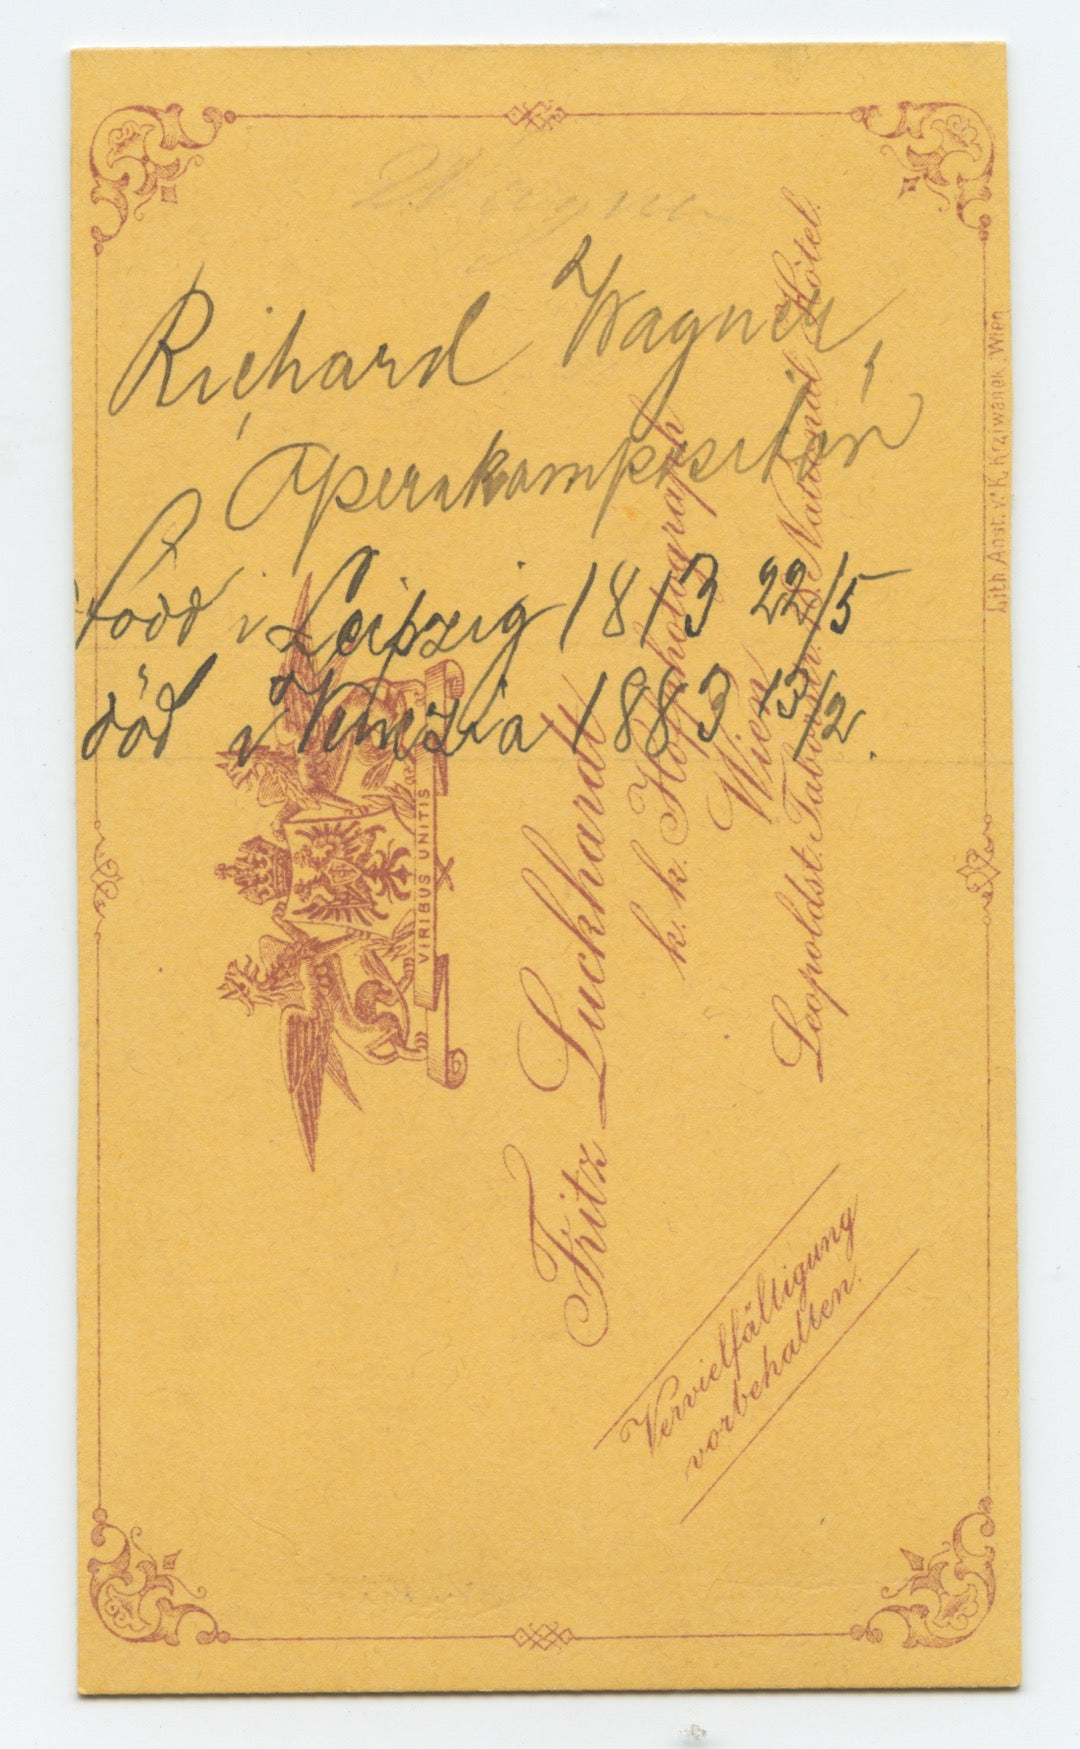 Wagner
Richard Wagner,
Opernkomponist
född i Leipzig 1813 22/5
död i Venezia 1883 13/2.
VIRIBUS UNITIS
Fritz Luckhardt
k. k. Hofphotograph
Wien
Leopoldst. Taborstr. National Hôtel.
Vervielfältigung
vorbehalten.
Lith. Anst. v. K. Krziwanek, Wien